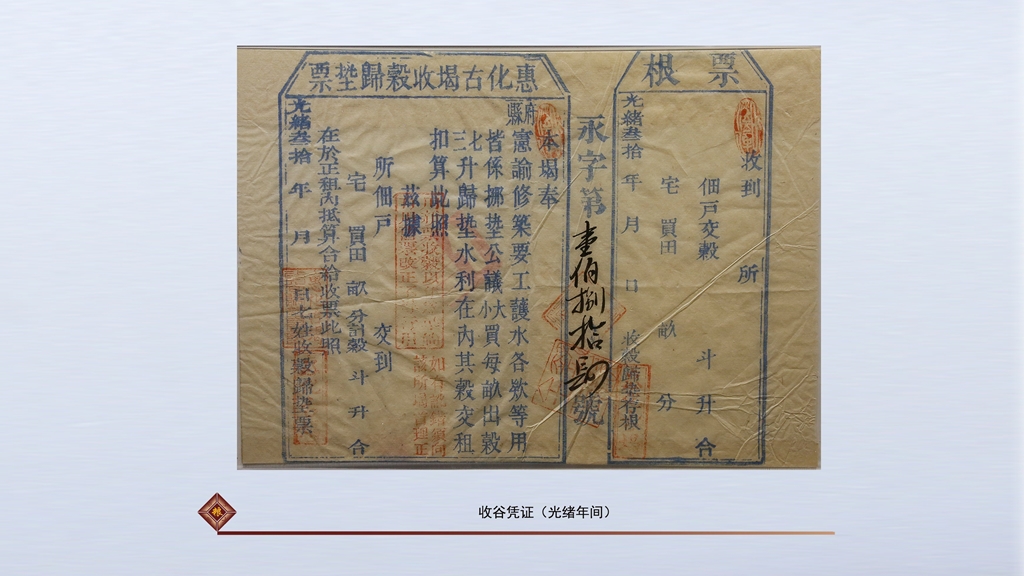 票根
收到 所
佃戶交穀 斗升合
宅買田 畝 分
光緒叁拾年 月 日 收穀歸墊存根
永字第壹伯捌拾肆號
惠化古堨收穀歸墊票
本堨奉
府縣
憲諭修築要工護水各欵等用
皆係挪墊公議大小買每畝出穀
七三升歸墊水利在內其穀交租
扣算此照
茲據
所佃戶 交到
宅買田 畝 分計穀 斗 升 合
在於正租內抵算合給收票此照
光緒叁拾年 月 日七姓收穀歸墊票
收谷凭证（光绪年间）